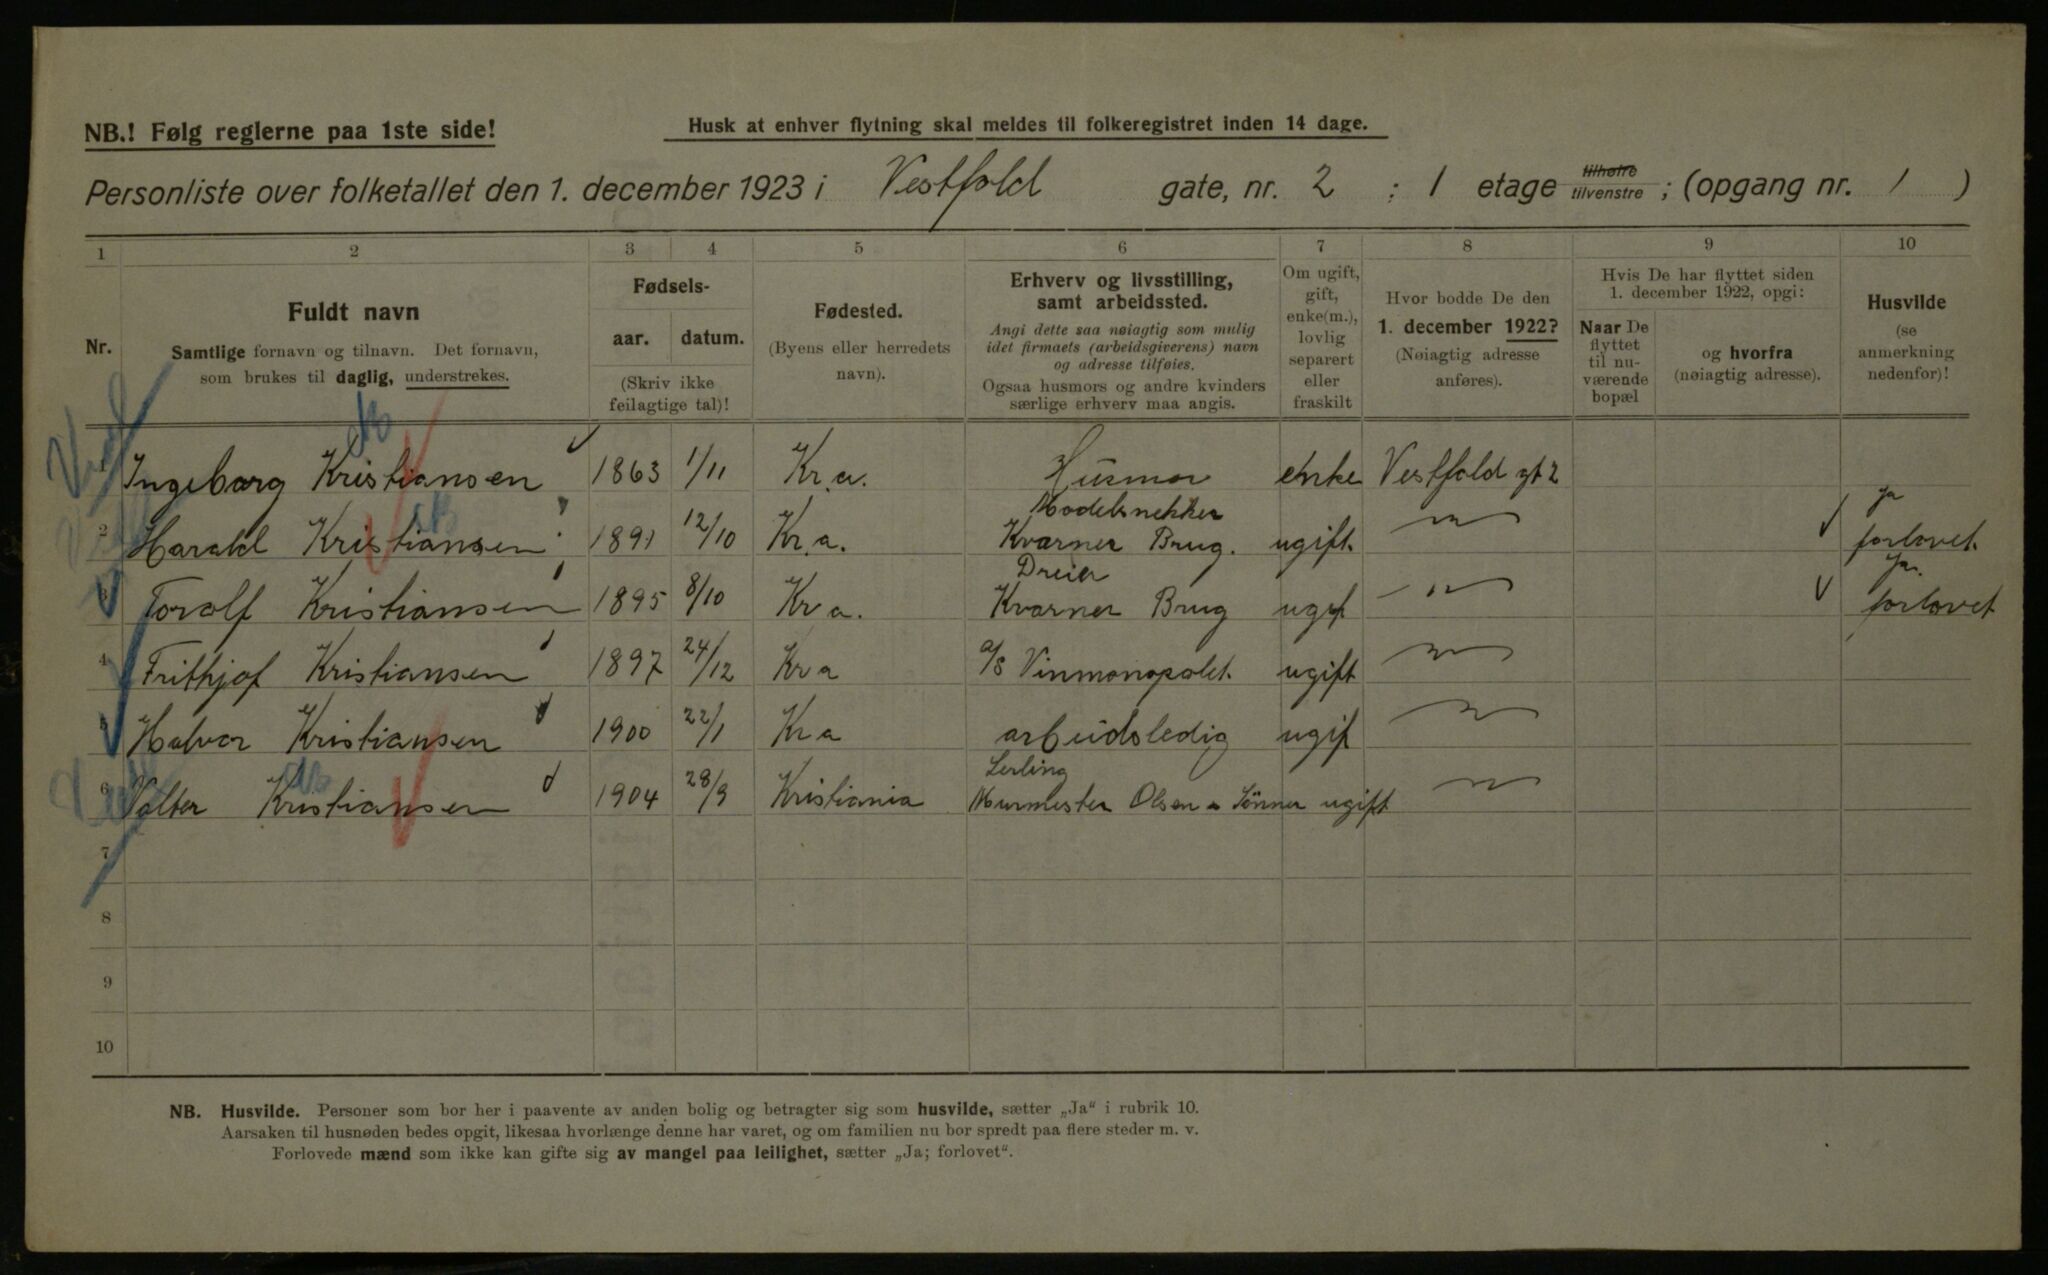 NB.! Følg reglerne paa 1ste side!
Husk at enhver flytning skal meldes til folkeregistret inden 14 dage.
Personliste over folketallet den 1. december 1923 i Vestfold gate, nr. 2 : 1 etage tilhøire tilvenstre ; (opgang nr. 1 )
1 2 3 4 5 6 7 8 9 10
Nr.
Fuldt navn
Samtlige fornavn og tilnavn. Det fornavn,
som brukes til daglig, understrekes.
Fødsels-
aar. datum.
(Skriv ikke
feilagtige tal)!
Fødested.
(Byens eller herredets
navn).
Erhverv og livsstilling,
samt arbeidssted.
Angi dette saa nøiagtig som mulig
idet firmaets (arbeidsgiverens) navn
og adresse tilføies.
Ogsaa husmors og andre kvinders
særlige erhverv maa angis.
Om ugift,
gift,
enke(m.),
lovlig
separert
eller
fraskilt
Hvor bodde De den
1. december 1922?
(Nøiagtig adresse
anføres).
Hvis De har flyttet siden
1. december 1922, opgi:
Naar De
flyttet
til nu-
værende
bopæl
og hvorfra
(nøiagtig adresse).
Husvilde
(se
anmerkning
nedenfor)!
1 Ingeborg Kristiansen 1863 1/11 Kr.a. Husmor enke Vestfold gt 2
Modelsnekker Ja
2 Harald Kristiansen 1891 12/10 Kr.a. Kværner Brug. ugift. — " — forlovet.
Dreier Ja.
3 Torolf Kristiansen 1895 8/10 Kr a. Kværner Brug ugif — " — forlovet
4 Frithjof Kristiansen 1897 24/12 Kr a a/s Vinmonopolet. ugift — " —
5 Halvor Kristiansen 1900 22/1 Kr a arbeidsledig ugif — " —
Lerling
6 Valter Kristiansen 1904 28/9 Kristiania Murmester Olsen & Sønner ugift — " —
7
8
9
10
NB. Husvilde. Personer som bor her i paavente av anden bolig og betragter sig som husvilde, sætter „Ja“ i rubrik 10.
Aarsaken til husnøden bedes opgit, likesaa hvorlænge denne har varet, og om familien nu bor spredt paa flere steder m. v.
Forlovede mænd som ikke kan gifte sig av mangel paa leilighet, sætter „Ja; forlovet“.